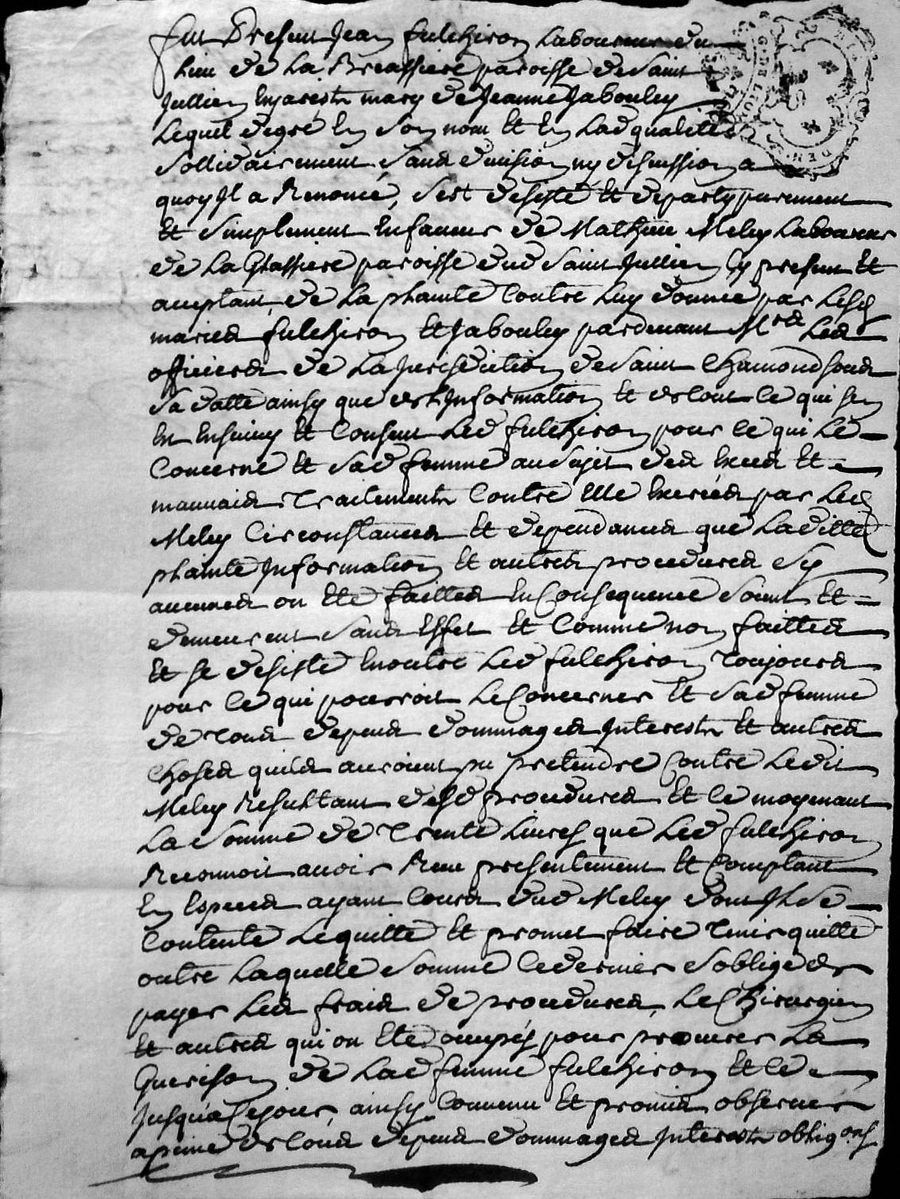 fut Present Jean fulchiron Laboureur du
Lieu de La Breassiere paroisse de Saint
Jullien En jarestz mary de Jeanne Jabouley
Lequel de gré En Son nom Et En Lad qualitté
Sollidairement Sans division ny discussion a
quoy Il a Renoncé, s'est desisté Et departy purement
Et Simplement En faveur de Mathieu Meley Laboureur
de La Grassiere paroisse dud Saint Jullien Cy present Et
aceptant, de La plainte Contre Luy donnee par Lesd
mariés fulchiron Et Jabouley pardevant Mrs Les
officiers de La Jurisdiction de Saint Chamond Sous
Sa datte ainsy que de L'Information Et de tout ce qui s'en
Est Ensuivy Et Consent Led fulchiron pour ce qui Le
Concerne Et Sad femme au Sujet des Exces Et
mauvais Traitements Contre Elle Exercés par Led
Meley Circonstances Et dependances que Laditte
plainte Information Et autres procedures Sy
aucunes on Eté faittes En Consequence Soient Et
demeurent Sans Effet Et Comme non faittes
Et Se desiste En outre Led fulchiron Toujours
pour Ce qui pourroit Le Concerner Et Sad femme
de Tous depens dommages Interestz Et autres
Choses quils auroient pu pretendre Contre Ledit
Meley Resultant desd procedures Et Ce moyenant
La Somme de Trente Livres que Led fulchiron
Reconnoit avoir Receu presentement Et Comptant
En Especes ayant Cours dud Meley dont Il Se
Contente Le quitte Et promet faire Tenir quitte
outre Laquelle Somme Ce dernier S'oblige de
payer Les frais de procedures, Le Chirurgien
Et autres qui on Eté ocupés pour procurer La
Guerison de Lad femme fulchiron Et Ce
Jusqu'a Ce jour ainsy Convenu Et promis observer
a peine de Tous depens dommages Interestz obligons